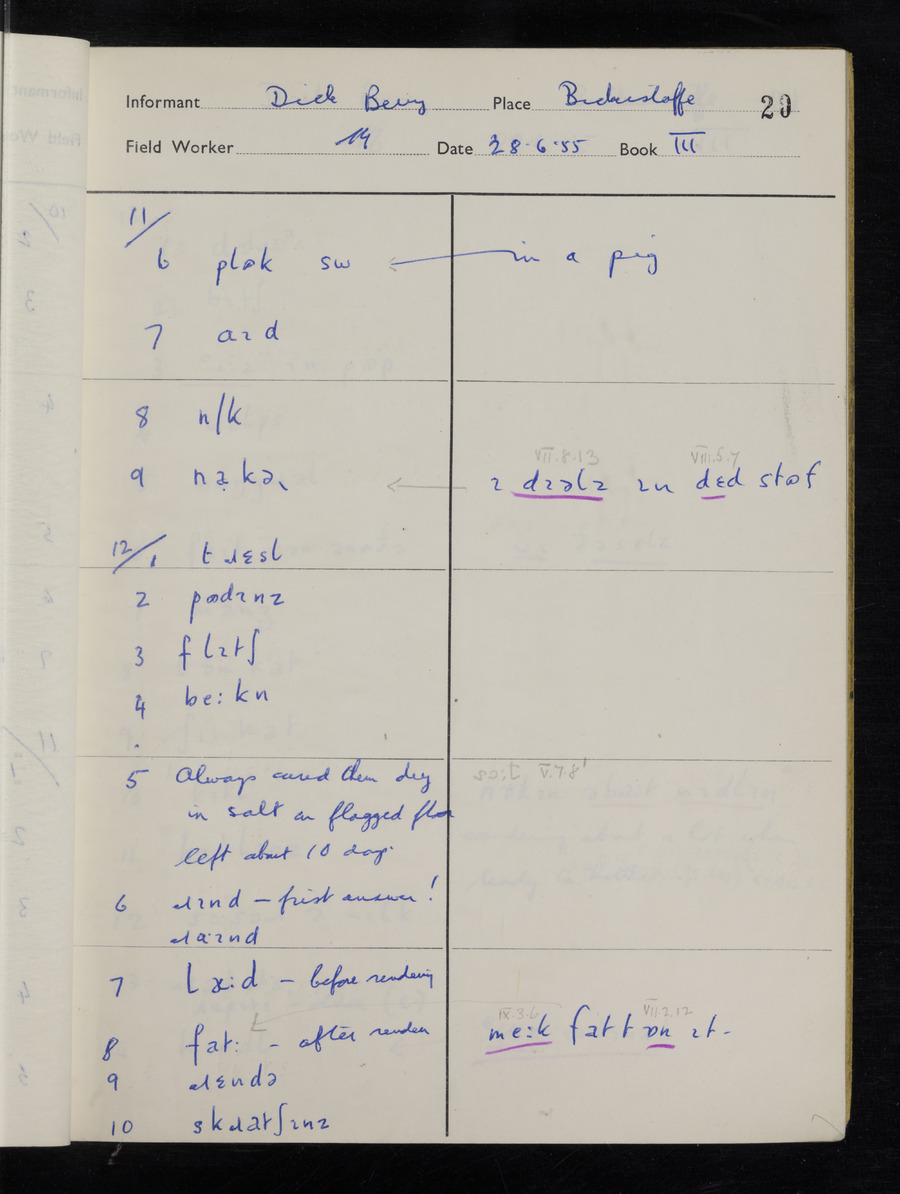 Informant Dick Berry Place Bickerstaffe 29
Field Worker 14 Date 28.6.55 Book III
11/
6 plɷk sw ← in a pig
7 aɪd
8 n/k
VII.8.13 VIII.5.7
9 nạkəɹ ← ɪ dɪəlz ɪn dɛd stɷf
12/1 tɹɛsl
2 pɷdɪnz
3 flɪtʃ
4 be:kn
5 Always cured them dry
so:t V.7.8
in salt on flagged floor
left about 10 days
6 ɹɪnd – first answer!
ɹaɪnd
7 læ:d – before rendering
IX.3.6 VII.2.12
8 fat: – after render
me:k fat t ɒn ɪt –
9 ɹɛndə
10 skɹatʃɪnz